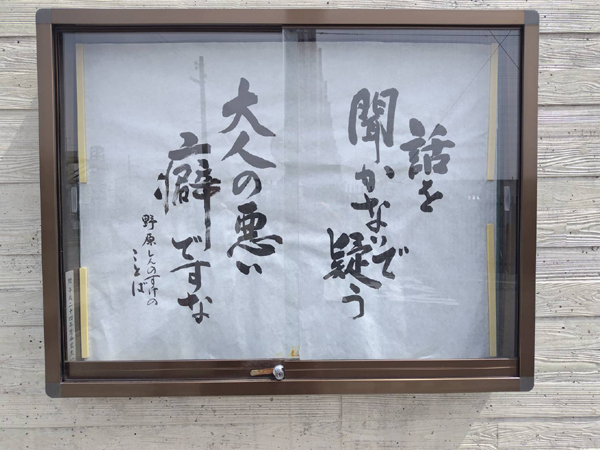 話を
聞かないで
疑う
大人の悪い
癖ですな
野原しんのすけの
ことば